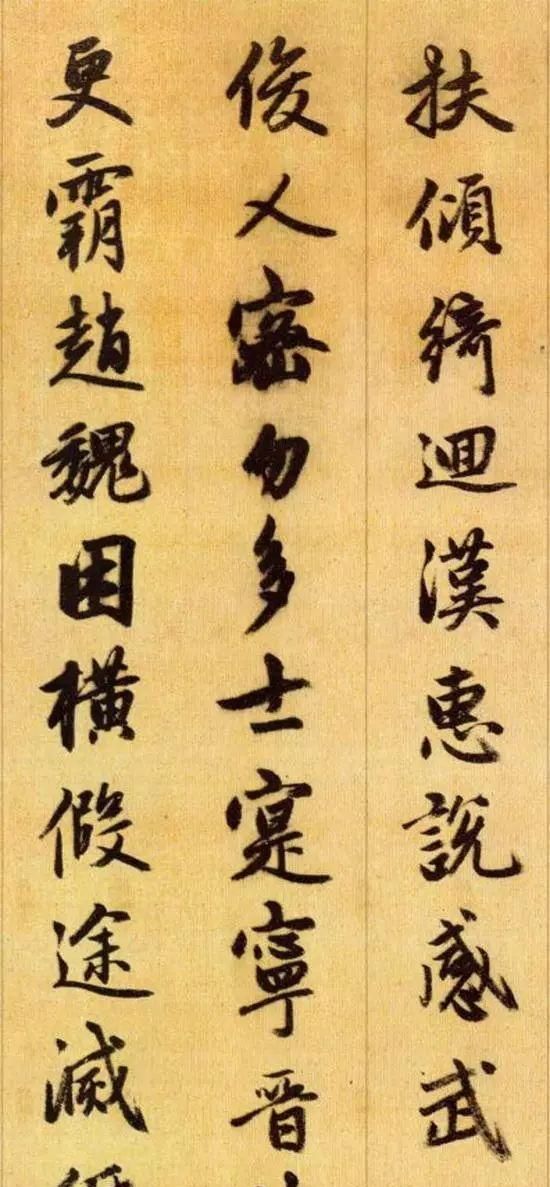 扶傾綺迴漢惠說感武
俊乂密勿多士寔寧晉
更霸趙魏困橫假途滅